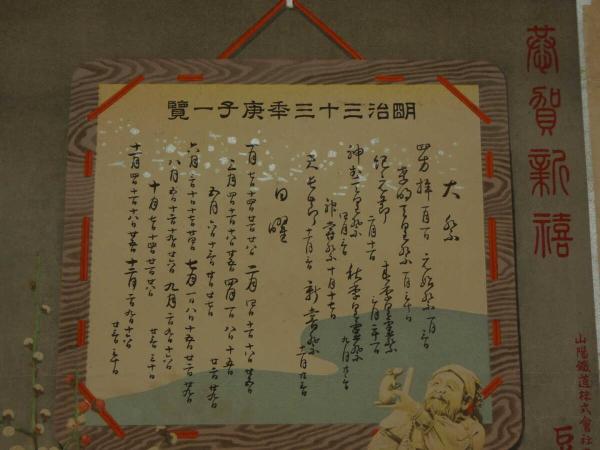 恭賀新禧
明治三十三年庚子一覧
大祭
四方拝 一月一日 元始祭 一月三日
孝明天皇祭 一月三十日
紀元節 二月十一日 春季皇霊祭 三月二十一日
神武天皇祭 四月三日 秋季皇霊祭 九月廿三日
神嘗祭 十月十七日
天長節 十一月三日 新嘗祭 十一月廿三日
日曜
一月 七日 十四 廿一 廿八 二月 四日 十一 十八 廿五
三月 四日 十一 十八 廿五 四月 一日 八日 十五
廿二 廿九
五月 六日 十三 二十 廿七
六月 三日 十日 十七 廿四 七月 一日 八日 十五 廿二 廿九
八月 五日 十二 十九 廿六 九月 二日 九日 十六
廿三 三十
十月 七日 十四 廿一 廿八
十一月 四日 十一 十八 廿五 十二月 二日 九日 十六
廿三 三十
山陽鐵道株式會社